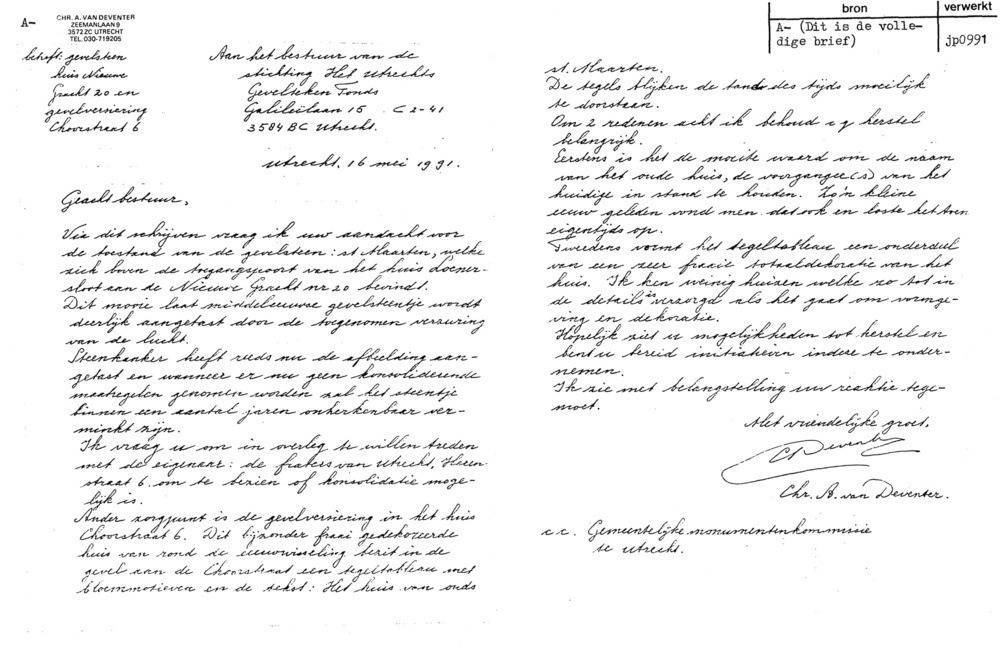 A-
CHR. A. VAN DEVENTER
ZEEMANLAAN 9
3572 ZC UTRECHT
TEL. 030-719205
betreft: gevelsteen
huis Nieuwe
Gracht 20 en
gevelversiering
Choorstraat 6
Aan het bestuur van de
stichting Het Utrechts
Gevelteken Fonds
Galileïlaan 15 C 2-41
3584 BC Utrecht.
Utrecht, 16 mei 1991.
Geacht bestuur,
Via dit schrijven vraag ik uw aandacht voor
de toestand van de gevelsteen: st Maarten, welke
zich boven de toegangspoort van het huis Loener-
sloot aan de Nieuwe Gracht nr 20 bevindt.
Dit mooie laat middeleeuwse gevelsteentje wordt
deerlijk aangetast door de toegenomen verzuring
van de lucht.
Steenkanker heeft reeds nu de afbeelding aan-
getast en wanneer er nu geen konsoliderende
maatregelen genomen worden zal het steentje
binnen een aantal jaren onherkenbaar ver-
minkt zijn.
Ik vraag u om in overleg te willen treden
met de eigenaar: de fraters van Utrecht, Heren-
straat 6. om te bezien of konsolidatie moge-
lijk is.
Ander zorgpunt is de gevelversiering in het huis
Choorstraat 6. Dit bijzonder fraai gedekoreerde
huis van rond de eeuwwisseling bezit in de
gevel aan de Choorstraat een tegeltableau met
bloemmotieven en de tekst: Het huis van ouds
bron
verwerkt
A- (Dit is de volle-
dige brief)
jp0991
st. Maarten.
De tegels blijken de tand des tijds moeilijk
te doorstaan.
Om 2 redenen acht ik behoud c q herstel
belangrijk.
Eerstens is het de moeite waard om de naam
van het oude huis, de voorganger(s) van het
huidige in stand te houden. Zo'n kleine
eeuw geleden vond men dat ook en loste het toen
eigentijds op.
Tweedens vormt het tegeltableau een onderdeel
van een zeer fraaie totaaldekoratie van het
huis. Ik ken weinig huizen welke zo tot in
de details is verzorgd als het gaat om vormge-
ving en dekoratie.
Hopelijk ziet u mogelijkheden tot herstel en
bent u bereid initiatieven indeze te onder-
nemen.
Ik zie met belangstelling uw reaktie tege-
moet.
Met vriendelijke groet,
Chr. A. van Deventer.
c.c. Gemeentelijke monumentenkommissie
te Utrecht.